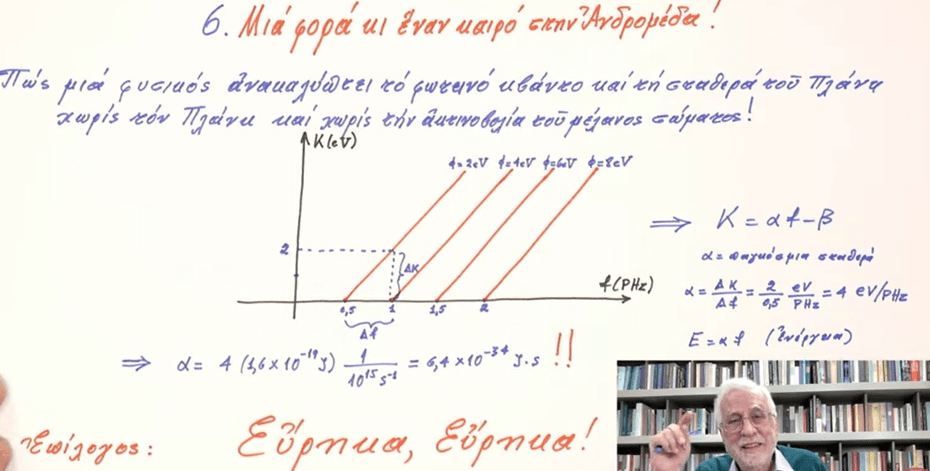 6. Μιά φορά κι ἕναν καιρό στην Ἀνδρομέδα!
Πώς μιά φυσικός ἀνακαλύπτει τό φωτεινό κβάντο καί τή σταθερά τοῦ Πλάνκ
χωρίς τόν Πλάνκ καί χωρίς τήν ἀκτινοβολία τοῦ μέλανος σώματος!
K(eV)
ϕ=2eV ϕ=4eV ϕ=6eV ϕ=8eV
2
ΔK
f(PHz)
0,5 1 1,5 2
Δf
⇒ K = αf-β
α = παγκόσμια σταθερά
α = ΔK/Δf = 2/0,5 eV/PHz = 4 eV/PHz
E = αf (Ἐνέργεια)
⇒ α = 4 (1,6×10⁻¹⁹J) 1/10¹⁵s⁻¹ = 6,4×10⁻³⁴ J.s !!
Ἐπίλογος: Εὕρηκα, Εὕρηκα!